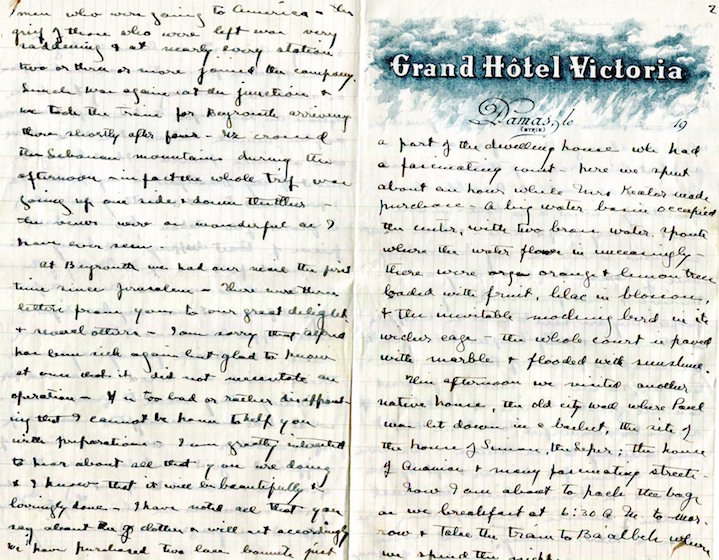 men who were going to America - The
grief of those who were left was very
saddening & at nearly every station
two or three or more joined the company.
Lunch was again at the junction &
we took the train for Beyrouth arriving
there shortly after four - We crossed
the Lebanon mountains during the
afternoon - in fact the whole trip was
going up one side & down the other -
the views were as wonderful as I
have ever seen.
At Beyrouth we had our mail the first
time since Jerusalem - There were three
letters from you to our great delight
& several others - I am sorry that
has been sick again but glad to know
at once that it did not necessitate an
operation - It is too bad or rather disappoint-
ing that I cannot be home to help you
with preparations - I am greatly interested
to hear about all that you are doing
& I know that it will be beautifully &
lovingly done - I have noted all that you
say about the clothes & will act accordingly
We have purchased two lace bonnets just
2
Grand Hôtel Victoria
Damas, le 19
(SYRIE)
a part of the dwelling house wh. had
a fascinating court - here we spent
about an hour while Mrs made
purchase - A big water basin occupied
the center, with two brass water spouts
where the water flows in unceasingly -
there were orange & lemon trees
loaded with fruit, lilac in blossom,
& the inevitable mocking bird in its
wicker cage - the whole court is paved
with marble & flooded with sunshine.
This afternoon we visited another
native house, the old city wall where Paul
was let down in a basket, the site of
the house of Simon, the leper; the house
of Ananias & many fascinating streets -
Now I am about to pack the bags
as we breakfast at 6:30 A.M. to-mor-
row & take the train to Ba'albek where
we spend the night